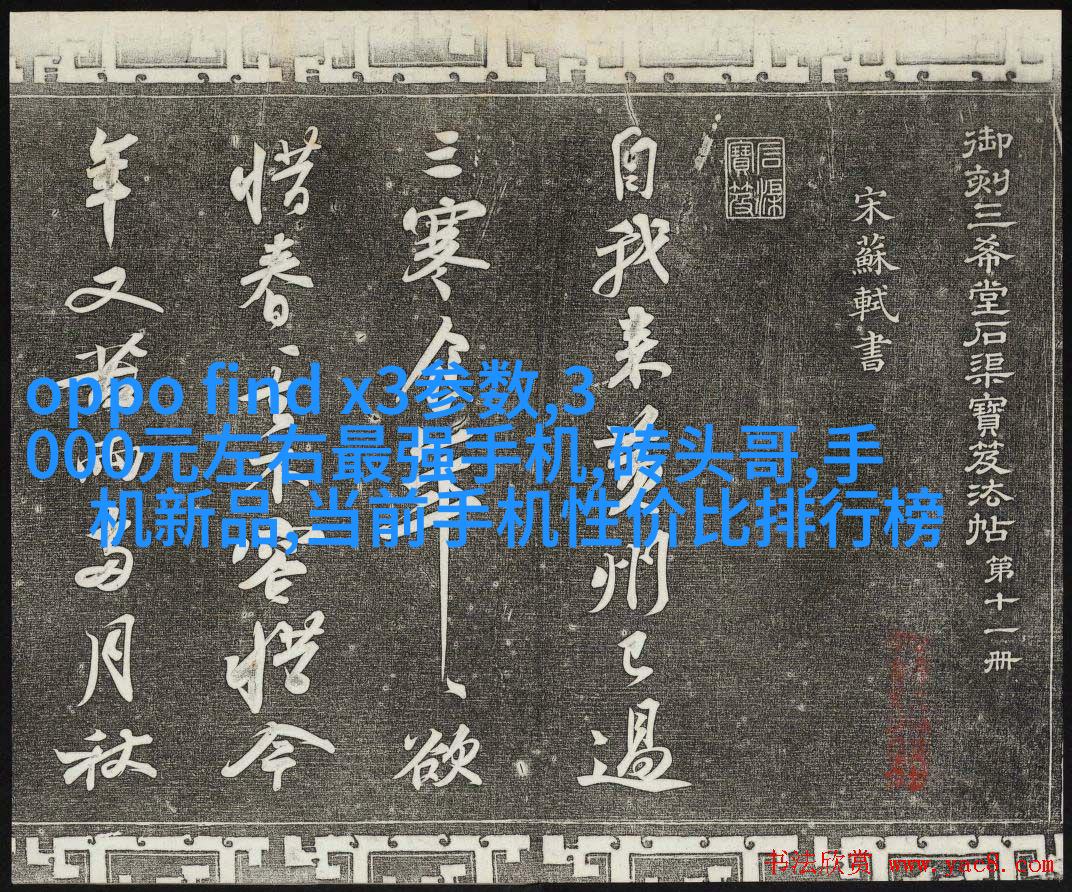 御刻三希堂石渠寶笈法帖 第十一册
宋蘇軾書
石渠寶笈
自我来黄州已過
三寒食年、欲
惜春、去不容惜今
年又苦雨兩月秋
oppo find x3参数,3
000元左右最强手机,砖头哥,手
机新品,当前手机性价比排行榜
书法欣赏 www.yac8.com